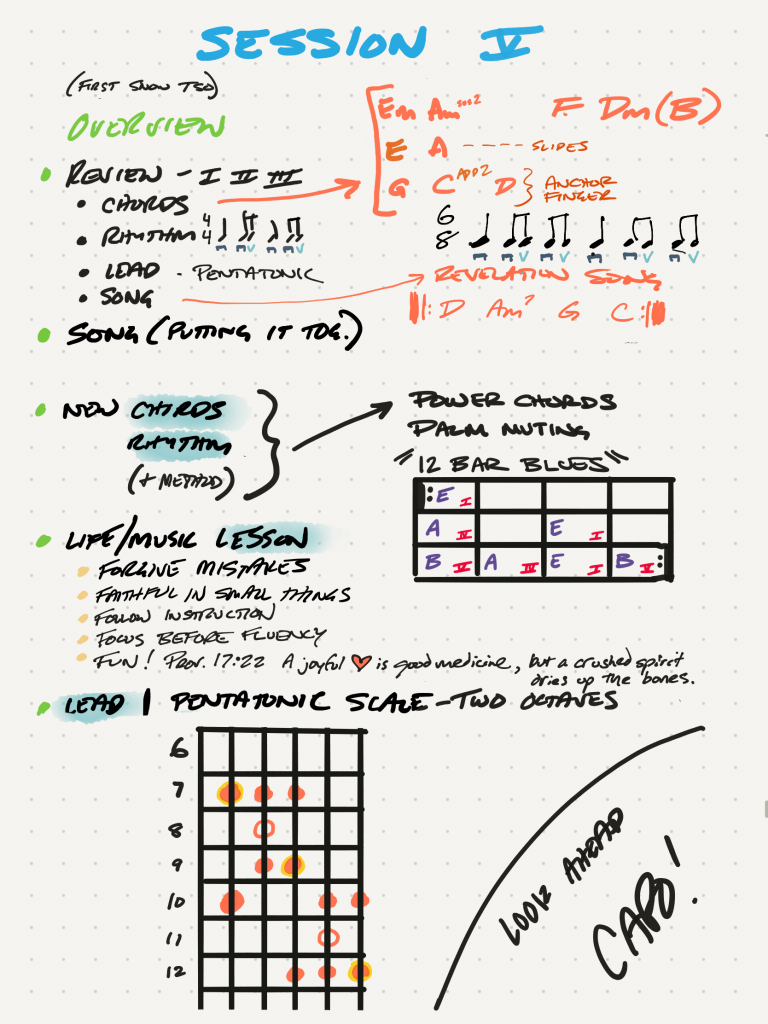 SESSION V
(FIRST SNOW TSO)
OVERVIEW
Em Amsus2 F Dm(B)
E A ---- SLIDES
G CADD2 D } ANCHOR
FINGER
• REVIEW - I II III
• CHORDS
• RHYTHM 4/4
6/8
• LEAD - PENTATONIC
• SONG
REVELATION SONG
||: D Am7 G C :||
• SONG (PUTTING IT TOG.)
• NEW CHORDS
RHYTHM
(+ METHOD)
POWER CHORDS
PALM MUTING
"12 BAR BLUES"
E I
A IV E I
B V A IV E I B V
• LIFE/MUSIC LESSON
• FORGIVE MISTAKES
• FAITHFUL IN SMALL THINGS
• FOLLOW INSTRUCTION
• FOCUS BEFORE FLUENCY
• FUN! Prov. 17:22 A joyful ♥ is good medicine, but a crushed spirit
dries up the bones.
• LEAD | PENTATONIC SCALE - TWO OCTAVES
6
7
8
9
10
11
12
LOOK AHEAD
CAPO!